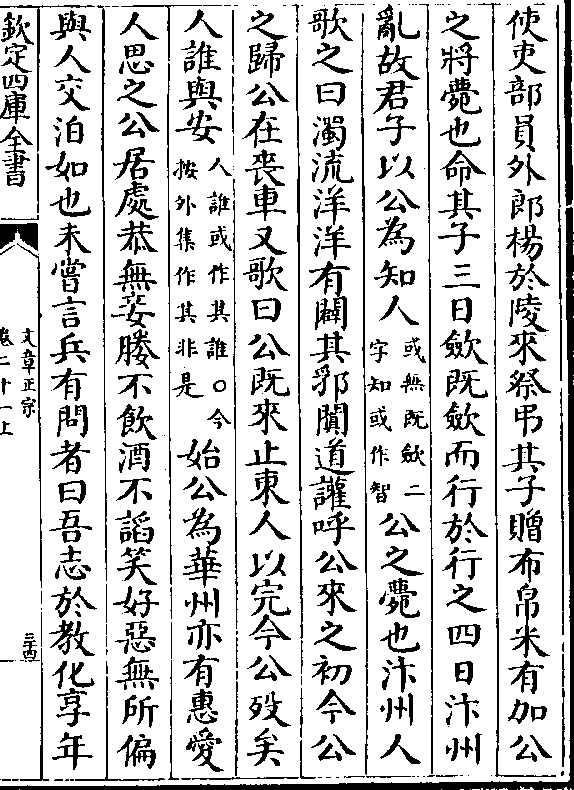 使吏部員外郎楊於陵來祭弔其子贈布帛米有加公
之將薨也命其子三日斂既斂而行於行之四日汴州
亂故君子以公為知人或無既斂二字知或作智公之薨也汴州人
歌之曰濁流洋洋有闢其郛闐道讙呼公來之初今公
之歸公在喪車又歌曰公既來止東人以完今公歿矣
人誰與安人誰或作其誰○今按外集作其非是始公為華州亦有惠愛
人思之公居處恭無妾媵不飲酒不諂笑好惡無所偏
與人交泊如也未嘗言兵有問者曰吾志於教化享年
欽定四庫全書
文章正宗
卷二十一上
三四